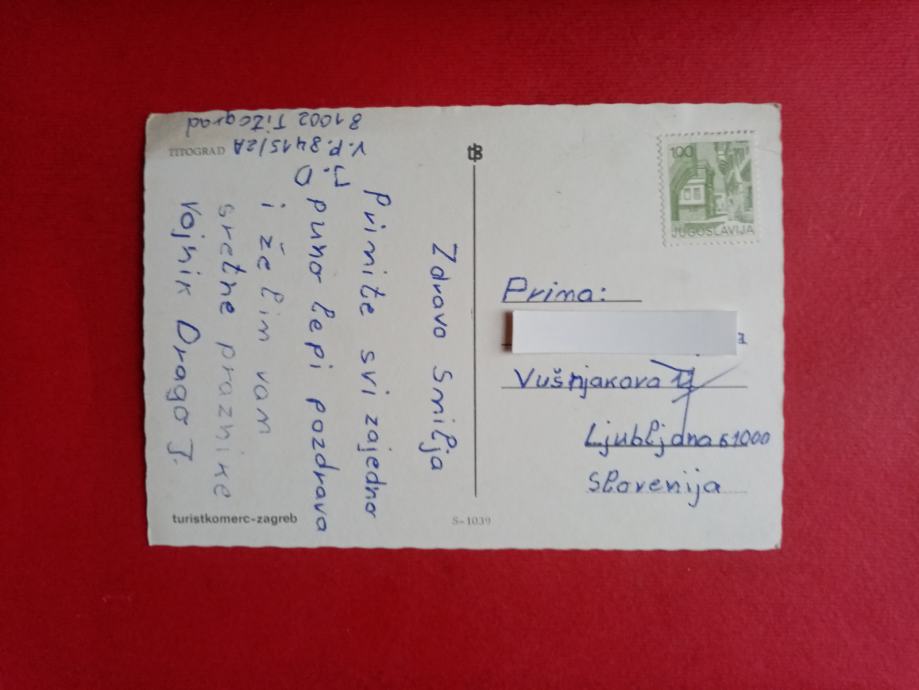 TITOGRAD
V.P. 8415/2A
81002 Titograd
Zdravo Smilja
Primite svi zajedno
puno lepi pozdrava
J. D
i želim vam
sretne praznike
Vojnik Drago J.
turistkomerc-zagreb
S-1039
100
JUGOSLAVIJA
Prima:
Vušnjakova
Ljubljana 61000
Slovenija